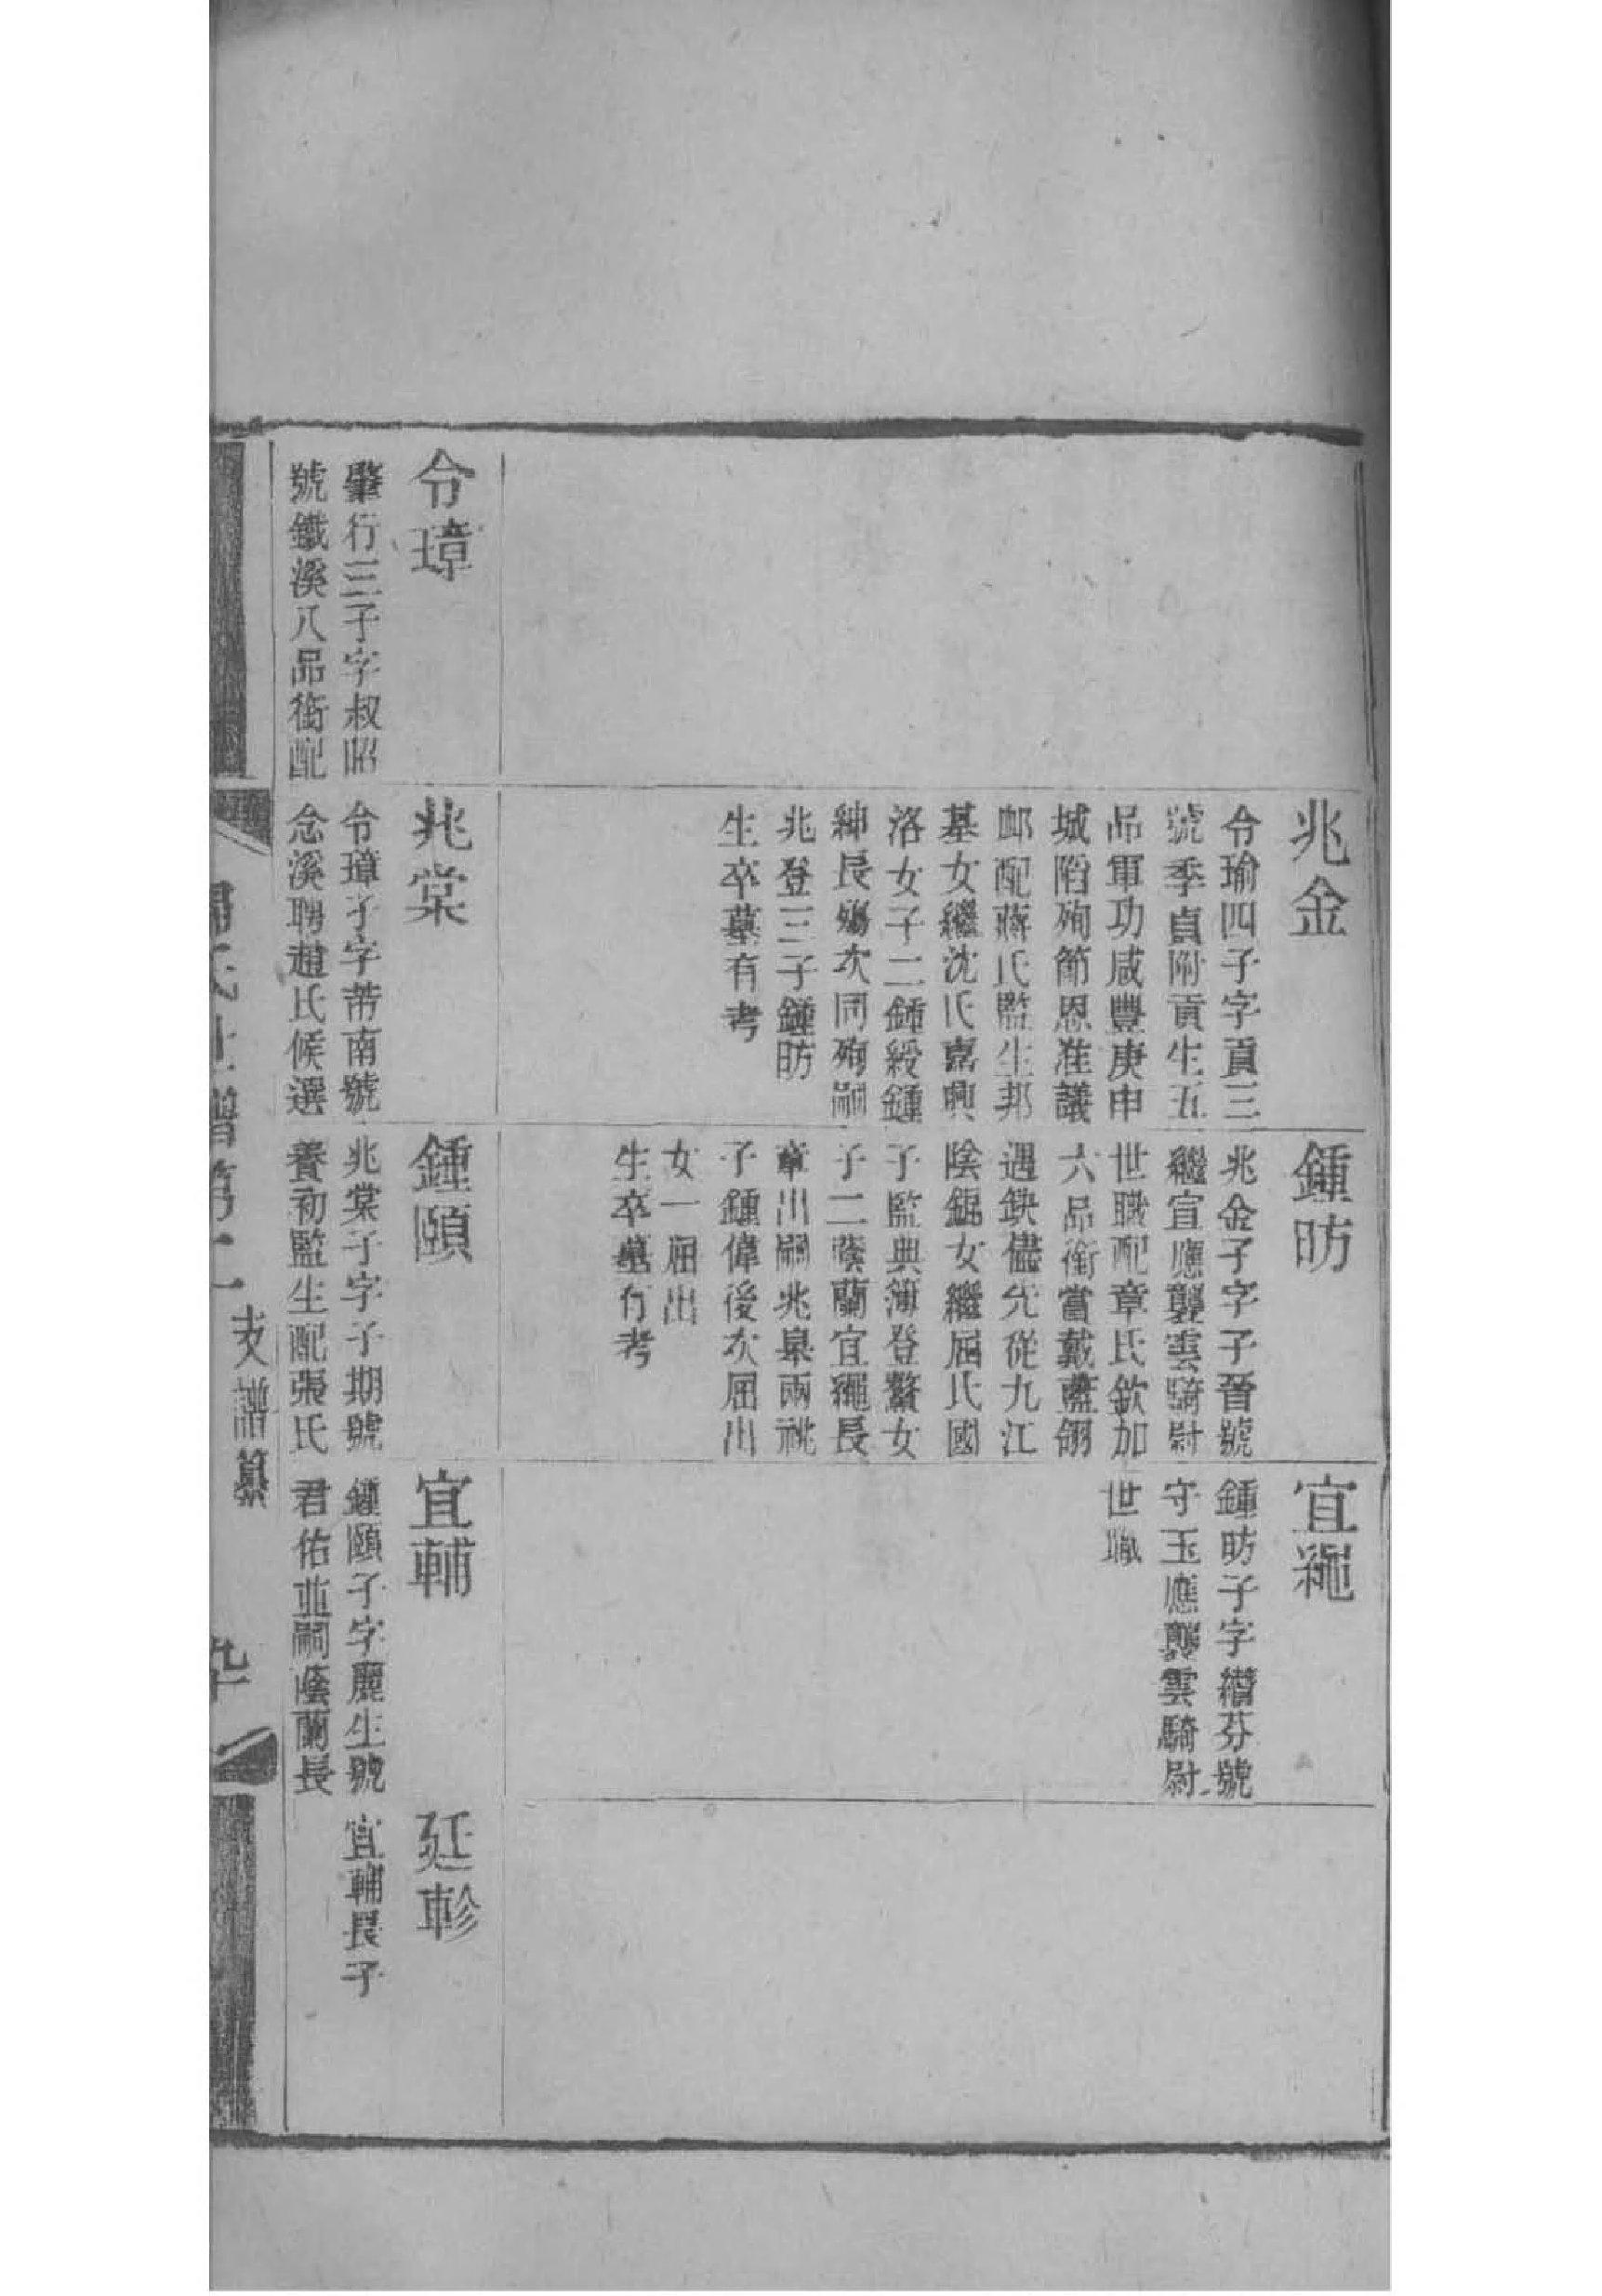 兆金
令瑜四子字貢三
號季貞附貢生五
品軍功咸豐庚申
城陷殉節恩准議
卹配蔣氏監生邦
基女繼沈氏嘉興
洛女子二鍾綬鍾
紳長殤次同殉嗣
兆登三子鍾昉
生卒墓有考
鍾昉
兆金子字子晉號
繼宣應襲雲騎尉
世職配章氏欽加
六品銜賞戴藍翎
遇缺儘先從九江
陰錫女繼屈氏國
子監典簿登鰲女
子二蔭蘭宜繩長
章出嗣兆臯兩祧
子鍾偉後次屈出
女一屈出
生卒墓有考
宜繩
鍾昉子字纘芬號
守玉應襲雲騎尉
世職
令璋
肇行三子字叔昭
號鐵溪八品銜配
兆棠
令璋子字芾南號
念溪聘趙氏候選
鍾頤
兆棠子字子期號
養初監生配張氏
宜輔
鍾頤子字麗生號
君佑並嗣蔭蘭長
廷軫
宜輔長子
氏世譜第十一
支譜纂